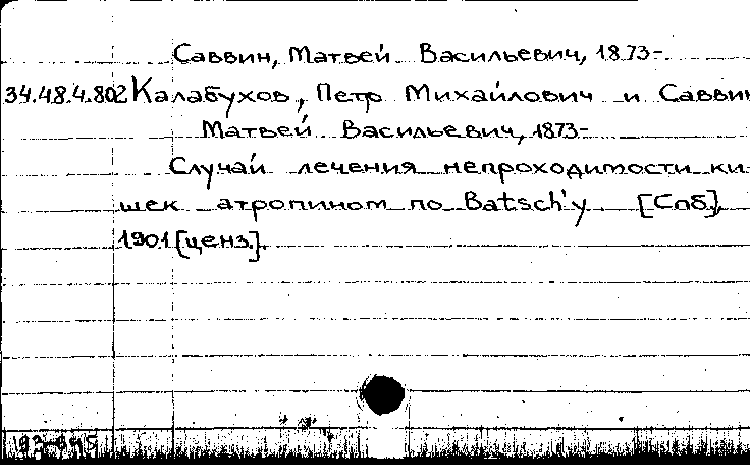 Саввин, Матвей Васильевич, 1873-
34.48.4.802 Калабухов, Петр Михайлович и Саввин
Матвей Васильевич, 1873-
Случай лечения непроходимости ки-
шек атропином по Batsch'у. [Спб.],
1901 [ценз.].